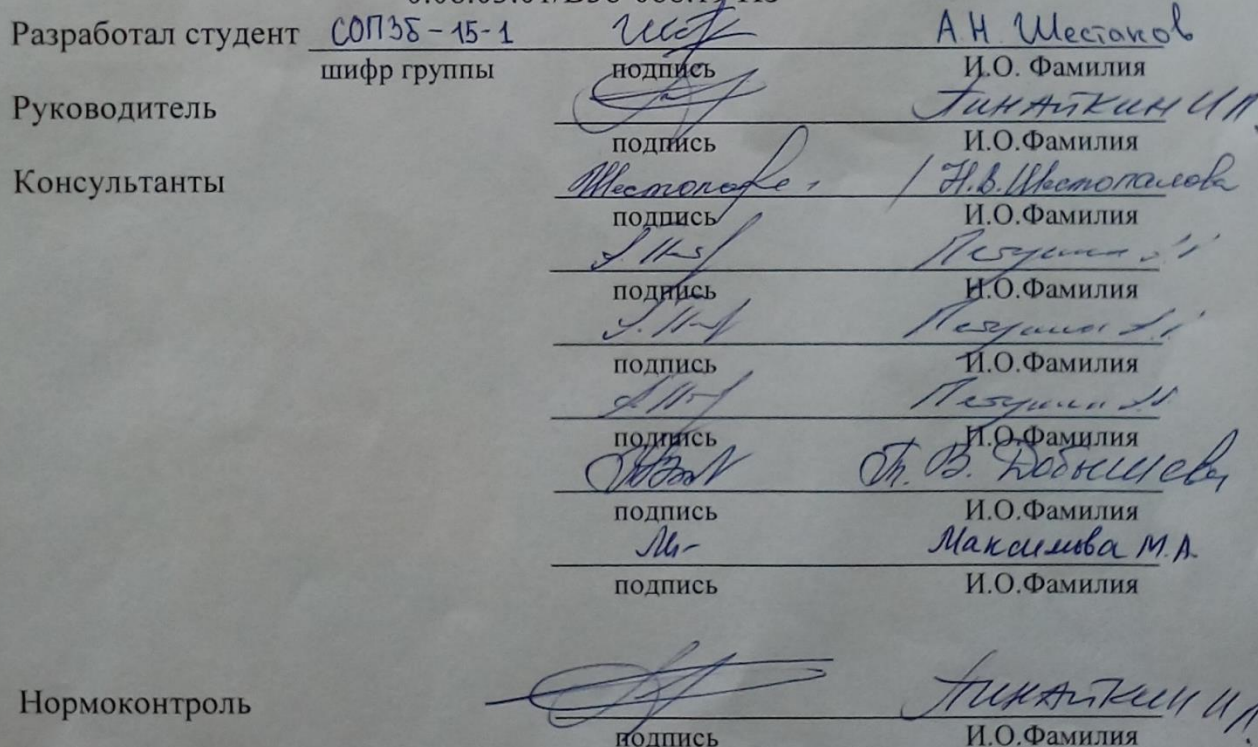 Разработал студент СОПЗБ-15-1 А.Н. Шестаков
шифр группы подпись И.О. Фамилия
Руководитель Пинайкин И.П.
подпись И.О.Фамилия
Консультанты / Н.В.Шестопалова
подпись И.О.Фамилия
подпись И.О.Фамилия
подпись И.О.Фамилия
подпись И.О.Фамилия
Т. В. Добышева
подпись И.О.Фамилия
Максимова М.А.
подпись И.О.Фамилия
Нормоконтроль Пинайкин И.П.
подпись И.О.Фамилия